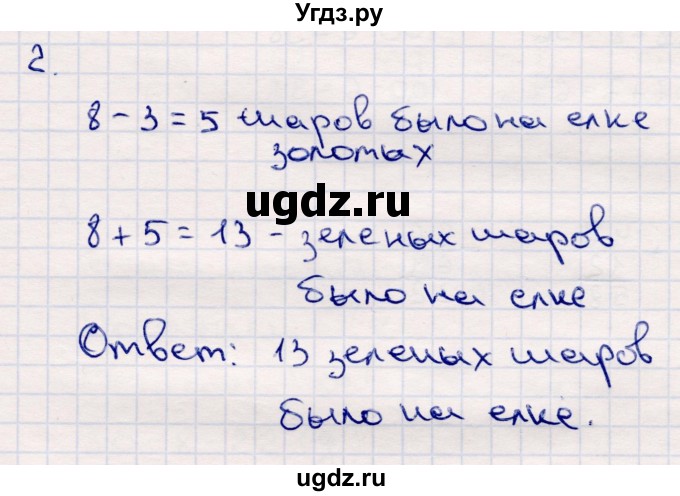 Угдз.ру
2.
8 - 3 = 5 шаров было на елке
золотых
ugdz.ru
8 + 5 = 13 - зеленых шаров
было на елке
Ответ: 13 зеленых шаров
было на елке.
ugdz.ru